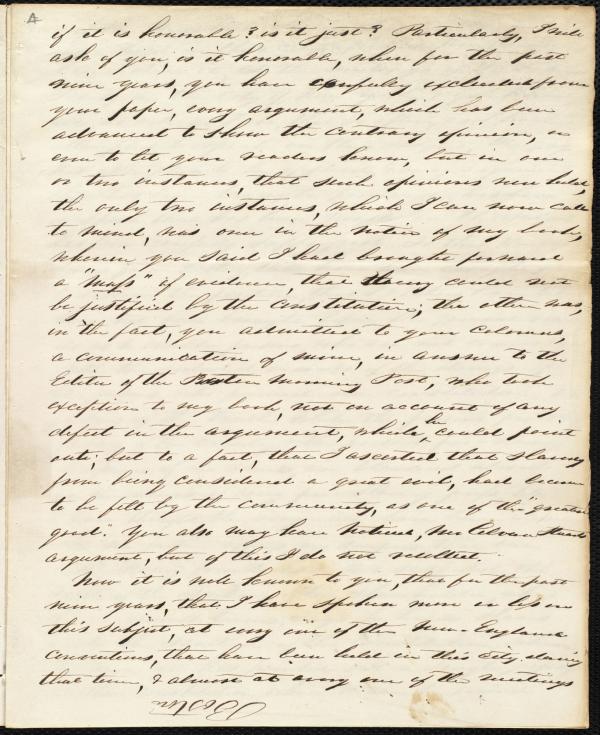 4
if it is honorable? is it just? Particularly, I will
ask of you, is it honorable, when for the past
nine years, you have carefully excluded from
your paper, every argument, which has been
advanced to show the contrary opinion, or
even to let your readers know, but in one
or two instances, that such opinions were held,
the only two instances, which I can now call
to mind, was one in the notice of my book,
wherein you said I had brought forward
a "mass" of evidence, that slavery could not
be justified by the Constitution; the other was,
in the fact, you admitted to your columns,
a communication of mine, in answer to the
Editor of the Boston Morning Post, who took
exception to my book, not on account of any
defect in the argument, which he could point
out; but to a fact, that I asserted that Slavery
from being considered a great evil, had become
to be felt by the community, as one of the "greatest
good." You also may have noticed, Mr Alvan Stewarts
argument, but of this I do not recollect.
Now it is well known to you, that for the past
nine years, that I have spoken more or less on
this subject, at every one of the New-England
Conventions, that have been held in this city during
that time, & almost at every one of the meetings
Boston